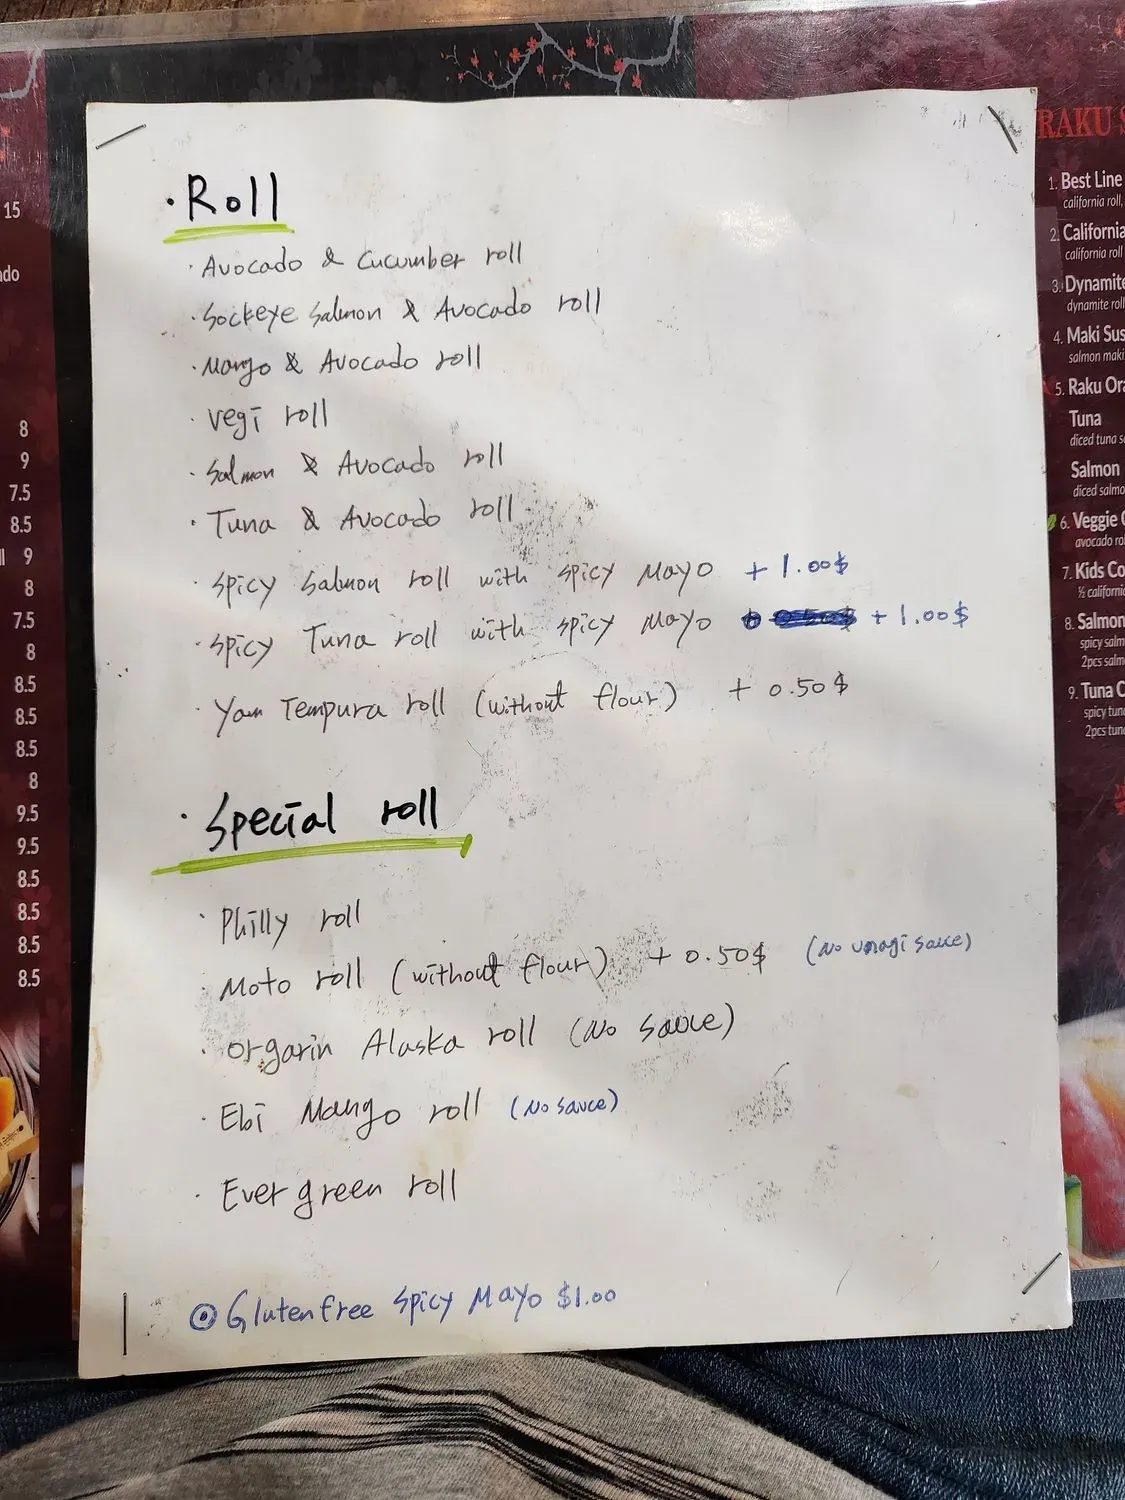 · Roll
· Avocado & Cucumber roll
· Sockeye Salmon & Avocado roll
· Mango & Avocado roll
· Vegi roll
· Salmon & Avocado roll
· Tuna & Avocado roll
· Spicy Salmon roll with spicy Mayo + 1.00$
· Spicy Tuna roll with spicy Mayo + 1.00$
· Yam Tempura roll (without flour) + 0.50$
· Special roll
· Philly roll
· Moto roll (without flour) + 0.50$ (No unagi sauce)
· Orgarin Alaska roll (No sauce)
· Ebi Mango roll (No sauce)
· Evergreen roll
Glutenfree Spicy Mayo $1.00
15
8
9
7.5
8.5
9
8
7.5
8
8.5
8.5
8.5
8
9.5
9.5
8.5
8.5
8.5
8.5
RAKU
1. Best Line
california roll,
2. California
california roll
3. Dynamite
dynamite roll
4. Maki Sus
salmon maki
5. Raku Ora
Tuna
diced tuna s
Salmon
diced salmo
6. Veggie C
avocado ro
7. Kids Co
½ california
8. Salmon
spicy salm
2pcs salm
9. Tuna C
spicy tun
2pcs tun